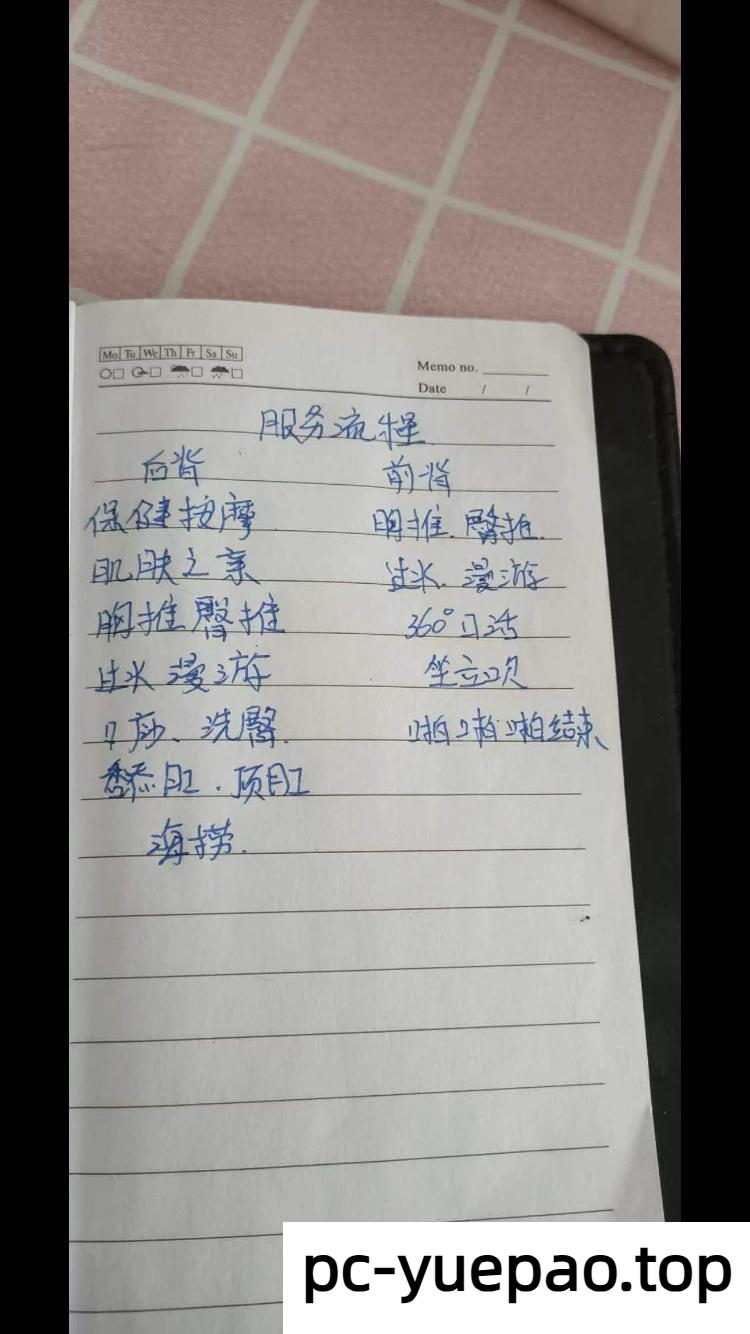 Mo Tu We Th Fr Sa Su
Memo no.
Date / /
服务流程
后背 前背
保健按摩 胸推.臀推.
肌肤之亲 过水.漫游
胸推臀推 360°口活
过水漫游 坐立吹
口 、洗臀. 啪啪啪结束、
舔肛.顶肛
海捞.
pc-yuepao.top